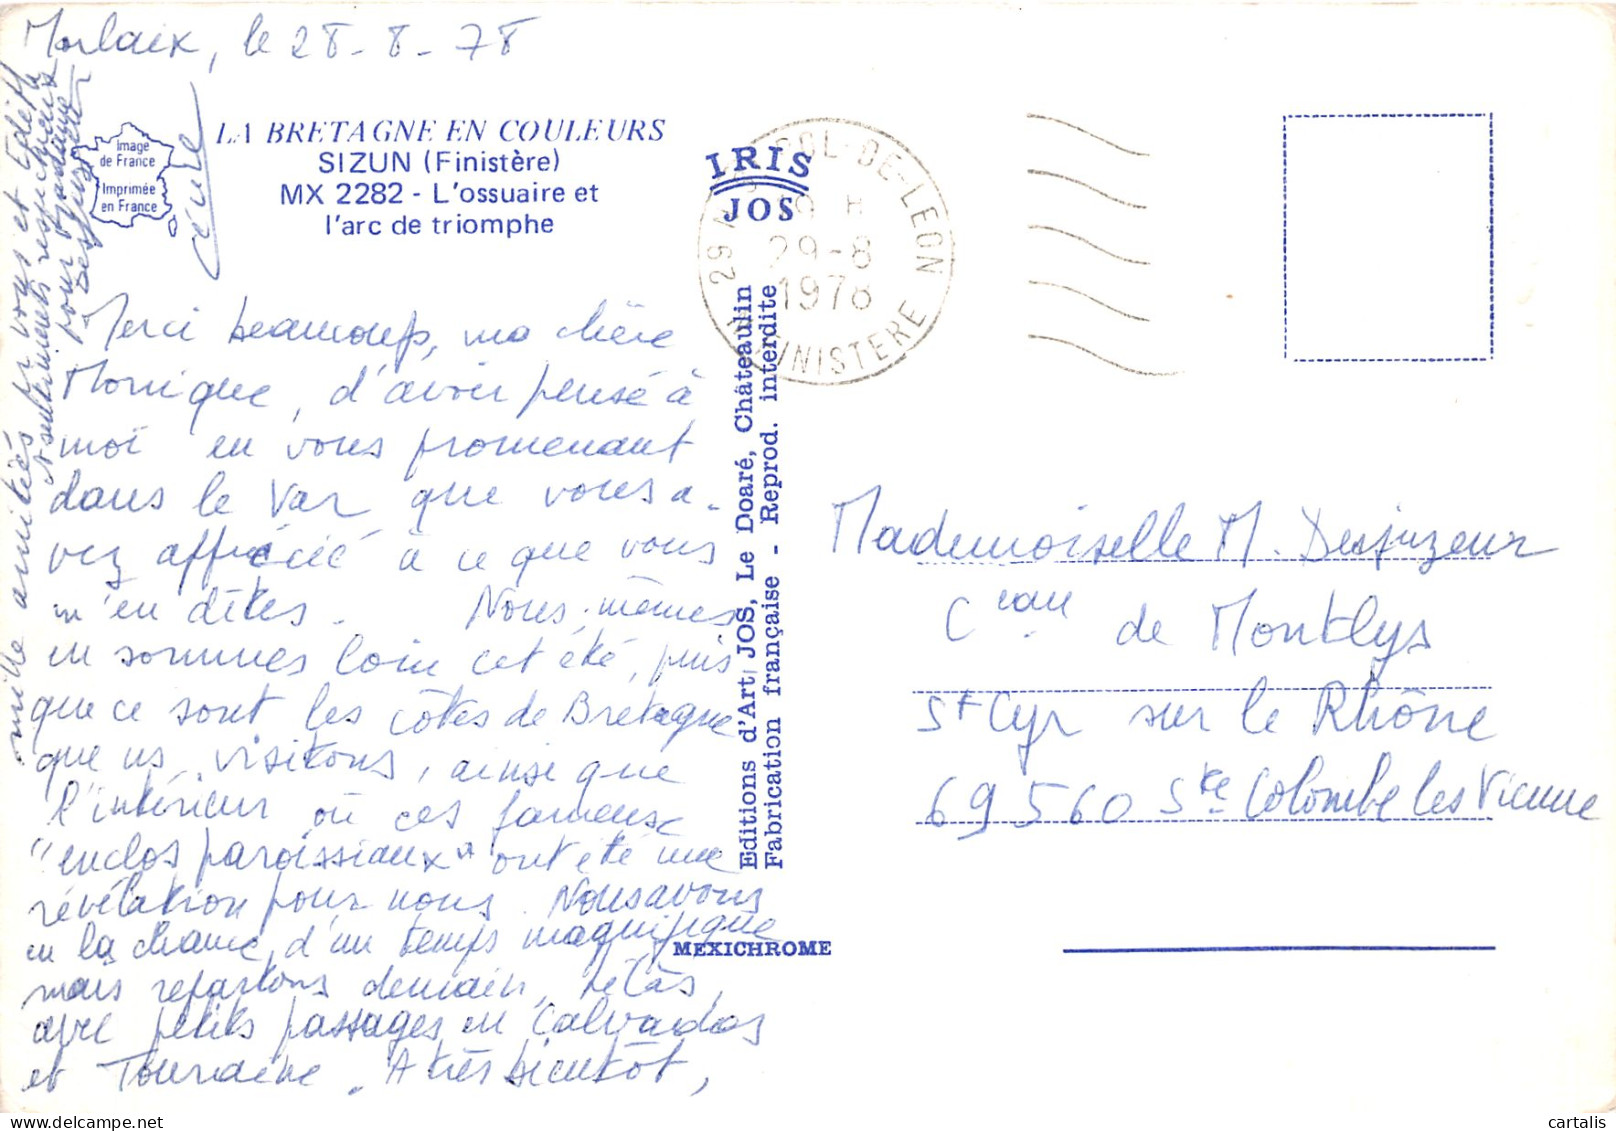 Morlaix, le 28-8-78
Image
de France
Imprimée
en France
LA BRETAGNE EN COULEURS
SIZUN (Finistère)
MX 2282 - L'ossuaire et
l'arc de triomphe
IRIS
JOS
POL-DE-LEON
29-8
1978
29 FINISTERE
Merci beaucoup, ma chère
Monique, d'avoir pensé à
moi en vous promenant
dans le Var que vous a-
vez apprécié à ce que vous
m'en dites. Nous-mêmes
en sommes loin cet été, puis
que ce sont les côtes de Bretagne
que ns visitons, ainsi que
l'intérieur où ces fameux
"enclos paroissiaux" ont été une
révélation pour nous. Nous avons
eu la chance d'un temps magnifique
mais repartons demain, hélas,
avec petits passages en Calvados
et Touraine. A très bientôt,
mille amitiés pr vous et Edith
sentiments respectueux
pour Madame
Desjuzeur
Editions d'Art JOS, Le Doaré, Châteaulin
Fabrication française - Reprod. interdite
MEXICHROME
Mademoiselle M. Desjuzeur
Ceau de Montlys
St Cyr sur le Rhône
69560 Ste Colombe les Vienne
cartalis